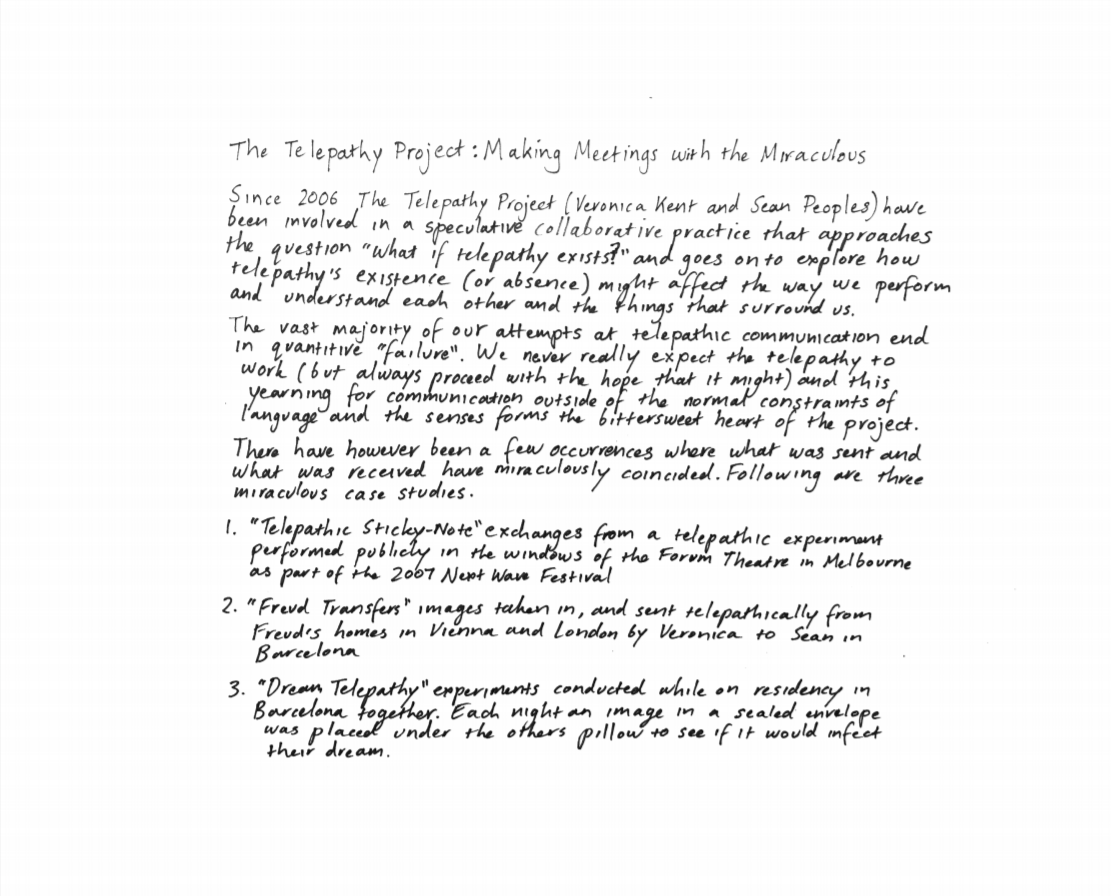 The Telepathy Project: Making Meetings with the Miraculous
Since 2006 The Telepathy Project (Veronica Kent and Sean Peoples) have
been involved in a speculative collaborative practice that approaches
the question "what if telepathy exists?" and goes on to explore how
telepathy's existence (or absence) might affect the way we perform
and understand each other and the things that surround us.
The vast majority of our attempts at telepathic communication end
in quantitive "failure". We never really expect the telepathy to
work (but always proceed with the hope that it might) and this
yearning for communication outside of the normal constraints of
language and the senses forms the bittersweet heart of the project.
There have however been a few occurrences where what was sent and
what was received have miraculously coincided. Following are three
miraculous case studies.
1. "Telepathic Sticky-Note" exchanges from a telepathic experiment
performed publicly in the windows of the Forum Theatre in Melbourne
as part of the 2007 Next Wave Festival
2. "Freud Transfers" images taken in, and sent telepathically from
Freud's homes in Vienna and London by Veronica to Sean in
Barcelona
3. "Dream Telepathy" experiments conducted while on residency in
Barcelona together. Each night an image in a sealed envelope
was placed under the others pillow to see if it would infect
their dream.